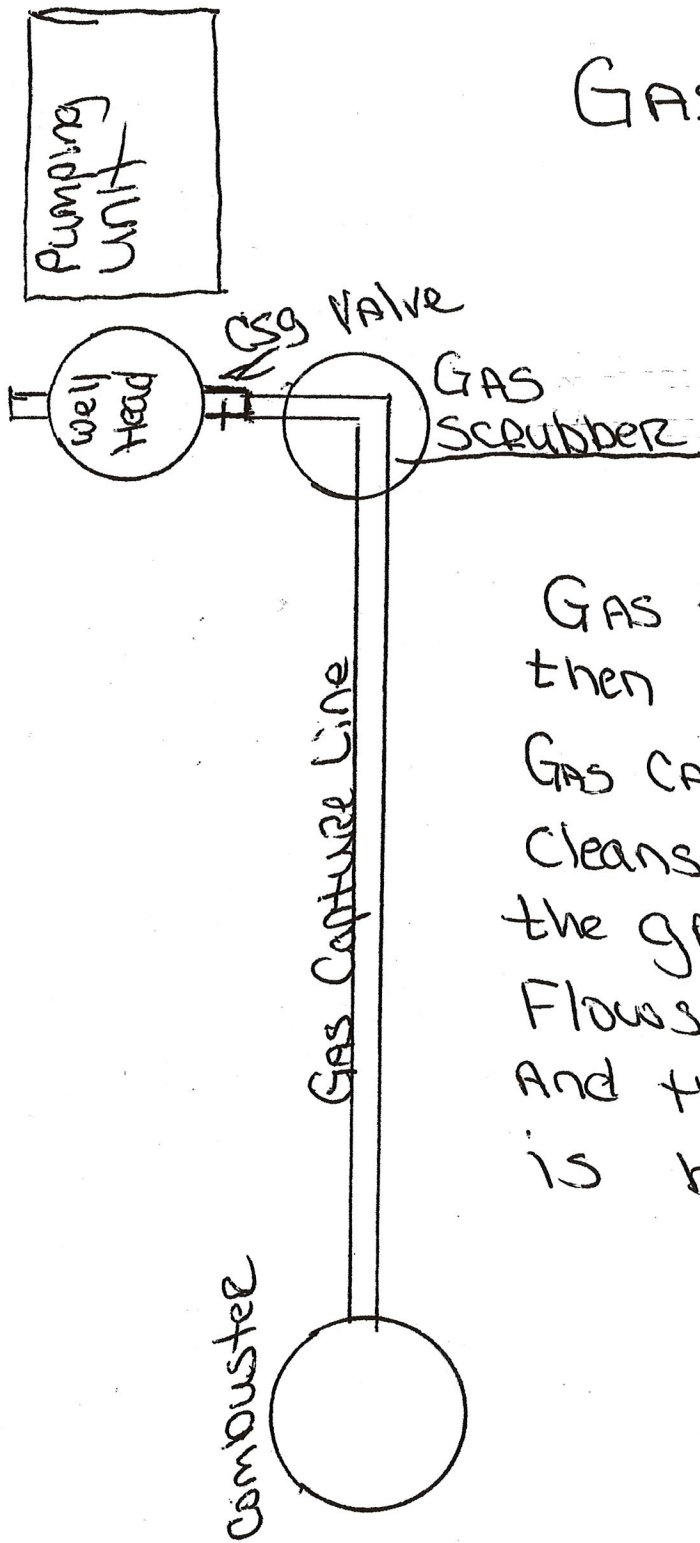 Pumping
Unit
GAS
Well
Head
Csg VAlve
GAS
ScRubbeR
GAS
then
GAS CA
Cleans
the gA
Flows
And t
is
GAS CaptuRe Line
Combuster